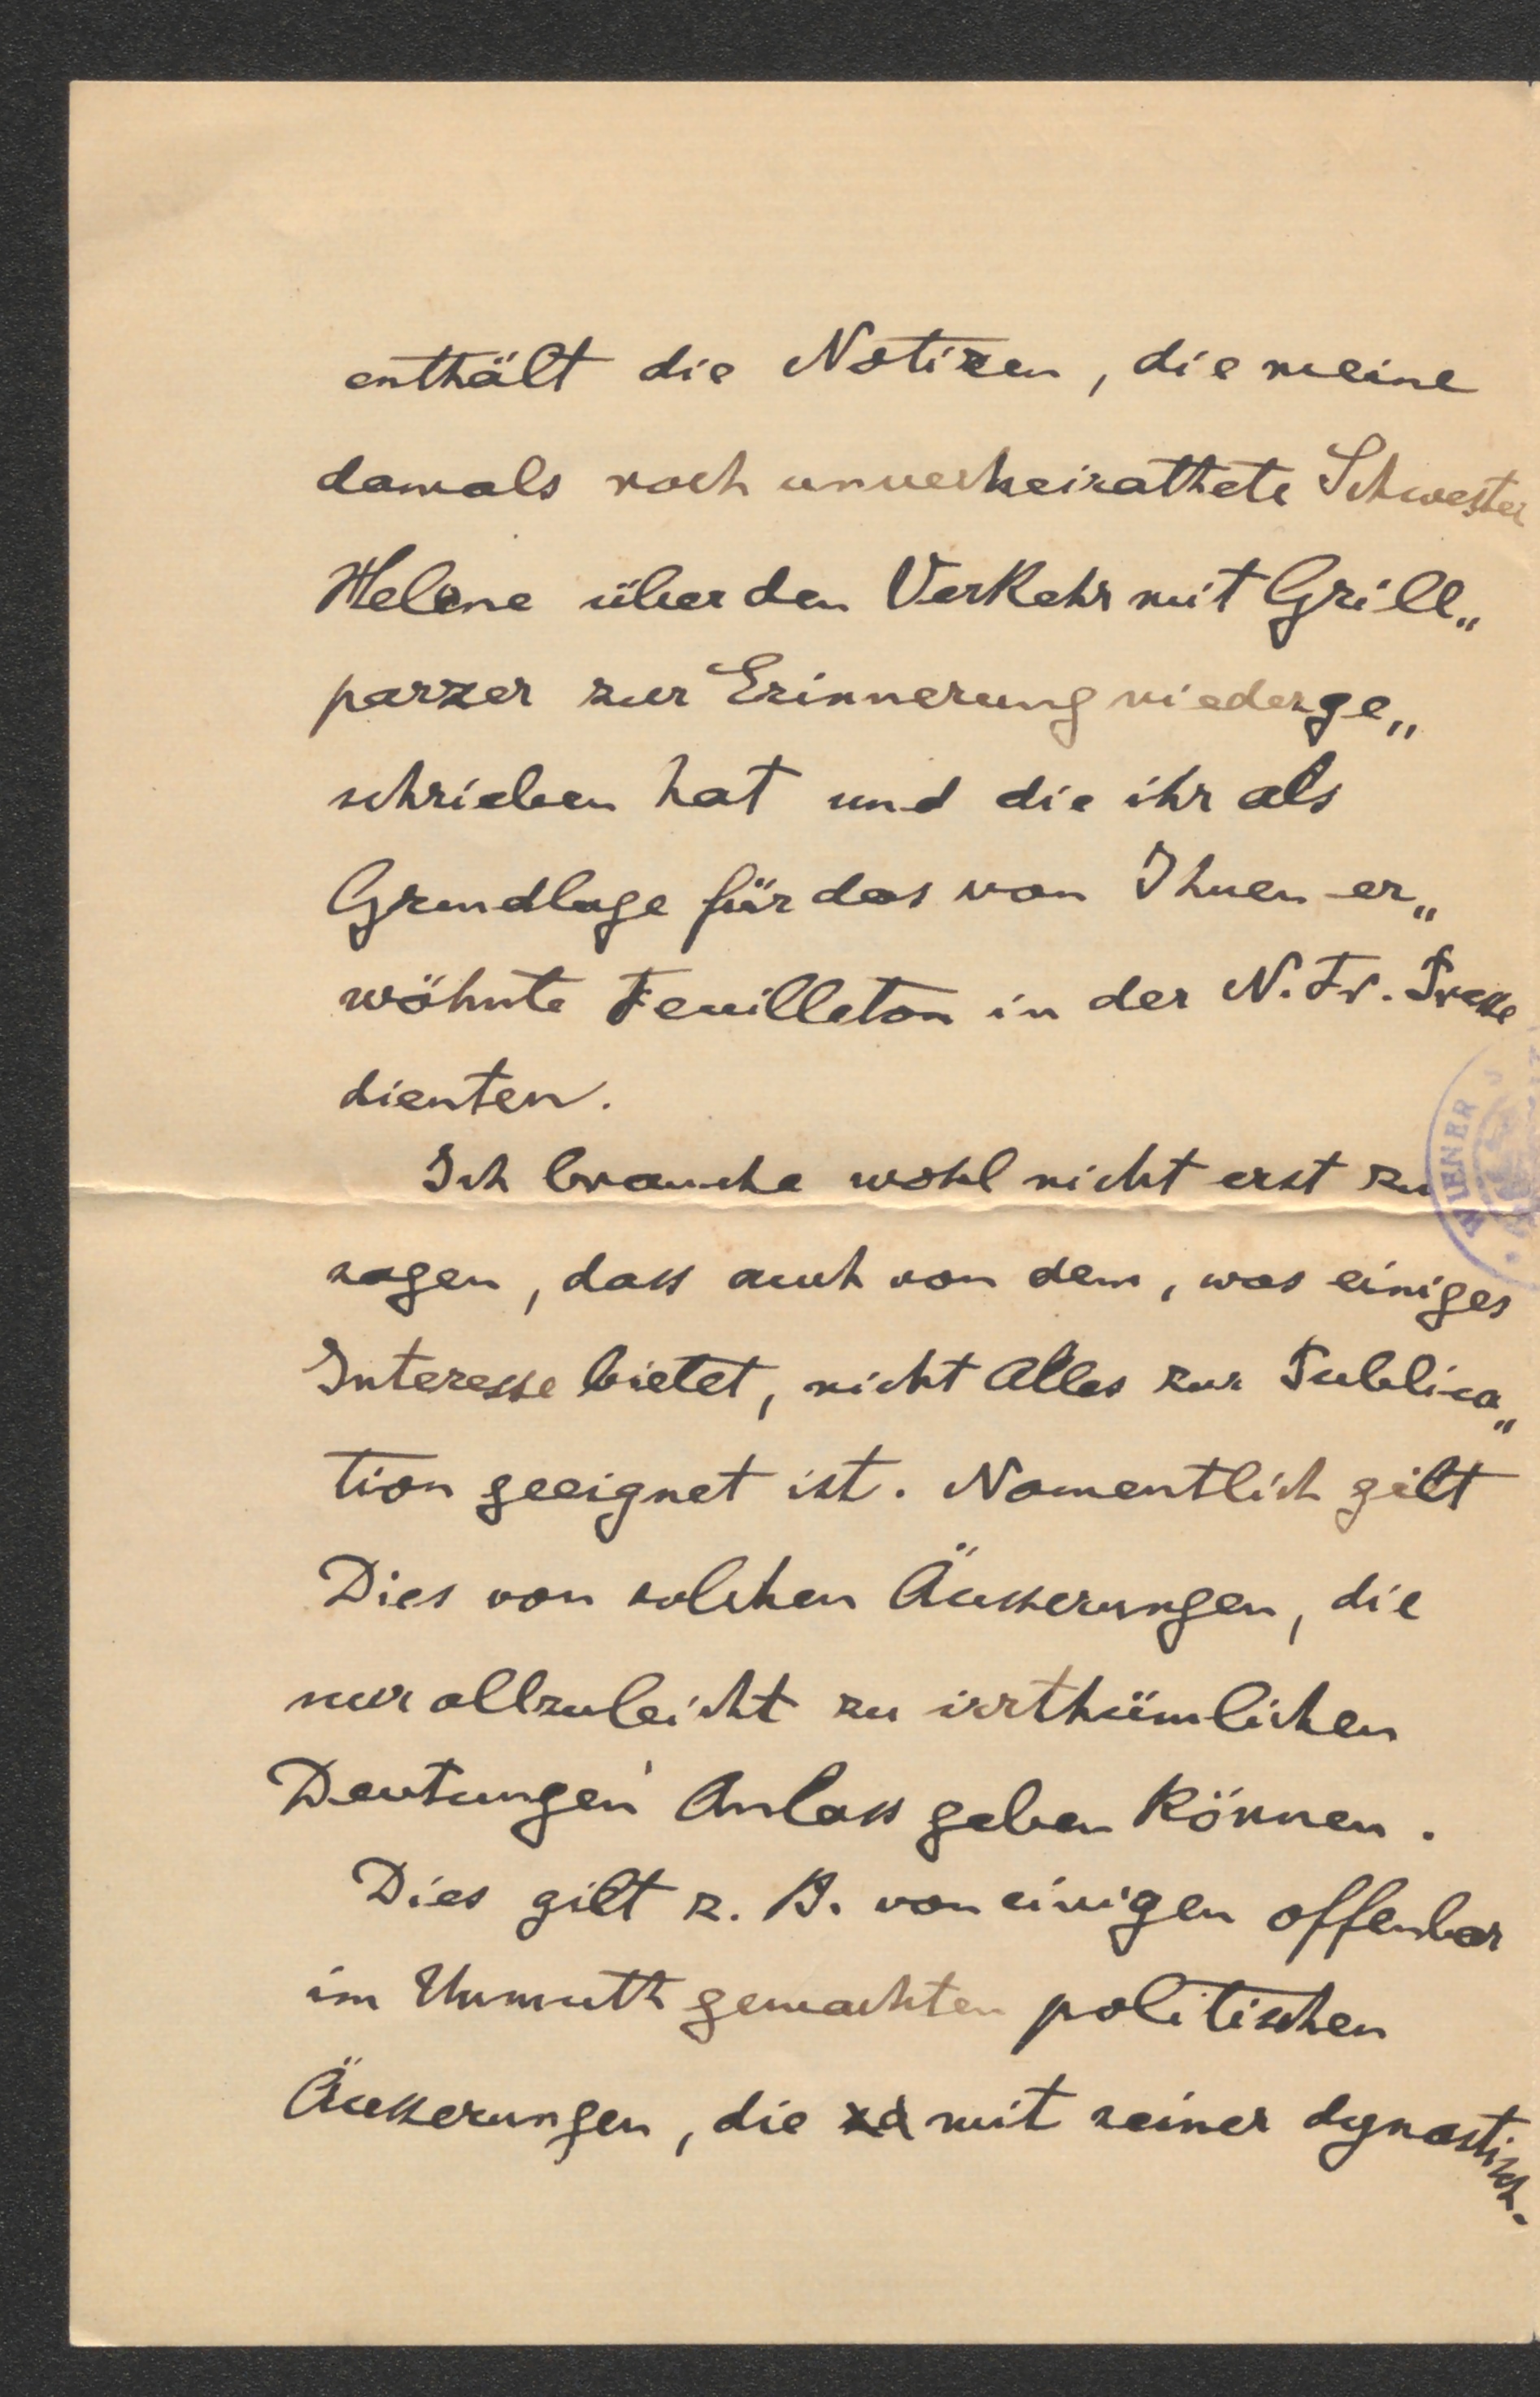 enthält die Notizen, die meine
damals noch unverheirathete Schwester
Helene über den Verkehr mit Grill„
parzer zur Erinnerung niederge„
schrieben hat und die ihr als
Grundlage für das von Ihnen er„
wähnte Feuilleton in der N. Fr. Presse
dienten.
Ich brauche wohl nicht erst zu
sagen, dass auch von dem, was einiges
Interesse bietet, nicht Alles zur Publica„
tion geeignet ist. Namentlich gilt
Dies von solchen Äusserungen, die
nur allzuleicht zu irrthümlichen
Deutungen Anlass geben können.
Dies gilt z. B. von einigen offenbar
im Unmuth gemachten politischen
Äusserungen, die mit seiner dynastisch-
WIENER